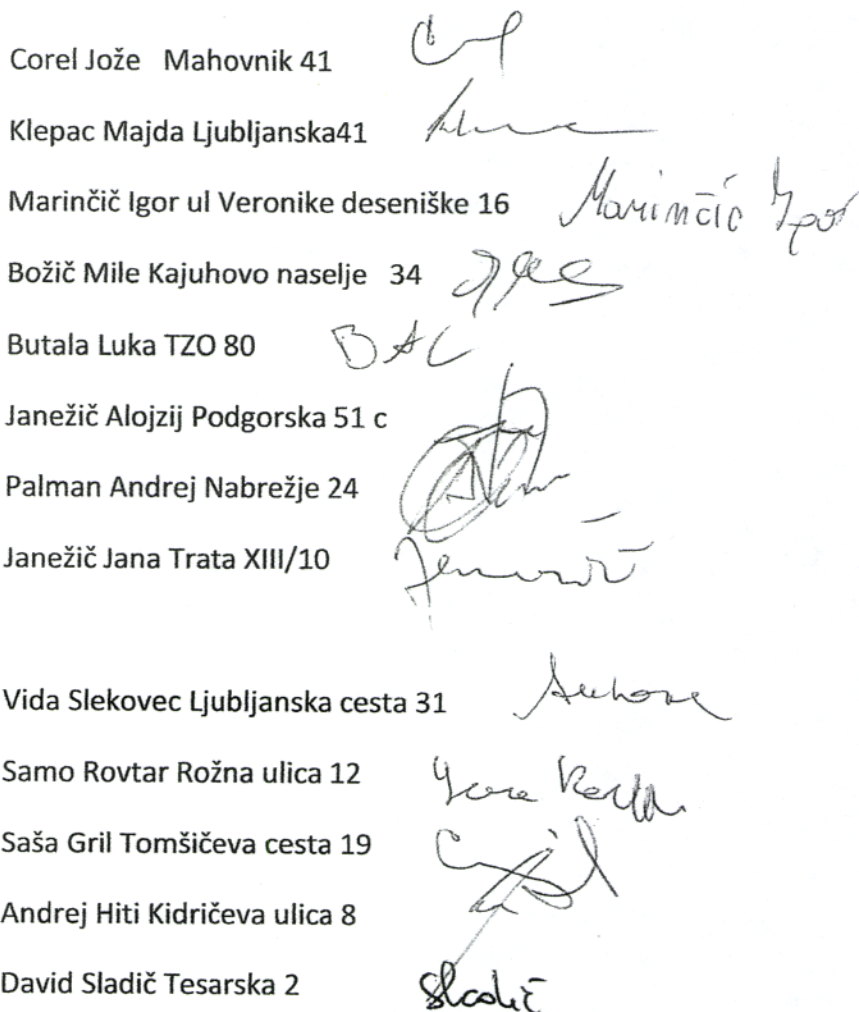 Corel Jože   Mahovnik 41
Klepac Majda Ljubljanska41
Marinčič Igor ul Veronike deseniške 16 Marinčič Igor
Božič Mile Kajuhovo naselje   34
Butala Luka TZO 80
Janežič Alojzij Podgorska 51 c
Palman Andrej Nabrežje 24
Janežič Jana Trata XIII/10
Vida Slekovec Ljubljanska cesta 31
Samo Rovtar Rožna ulica 12
Saša Gril Tomšičeva cesta 19
Andrej Hiti Kidričeva ulica 8
David Sladič Tesarska 2 Sladič